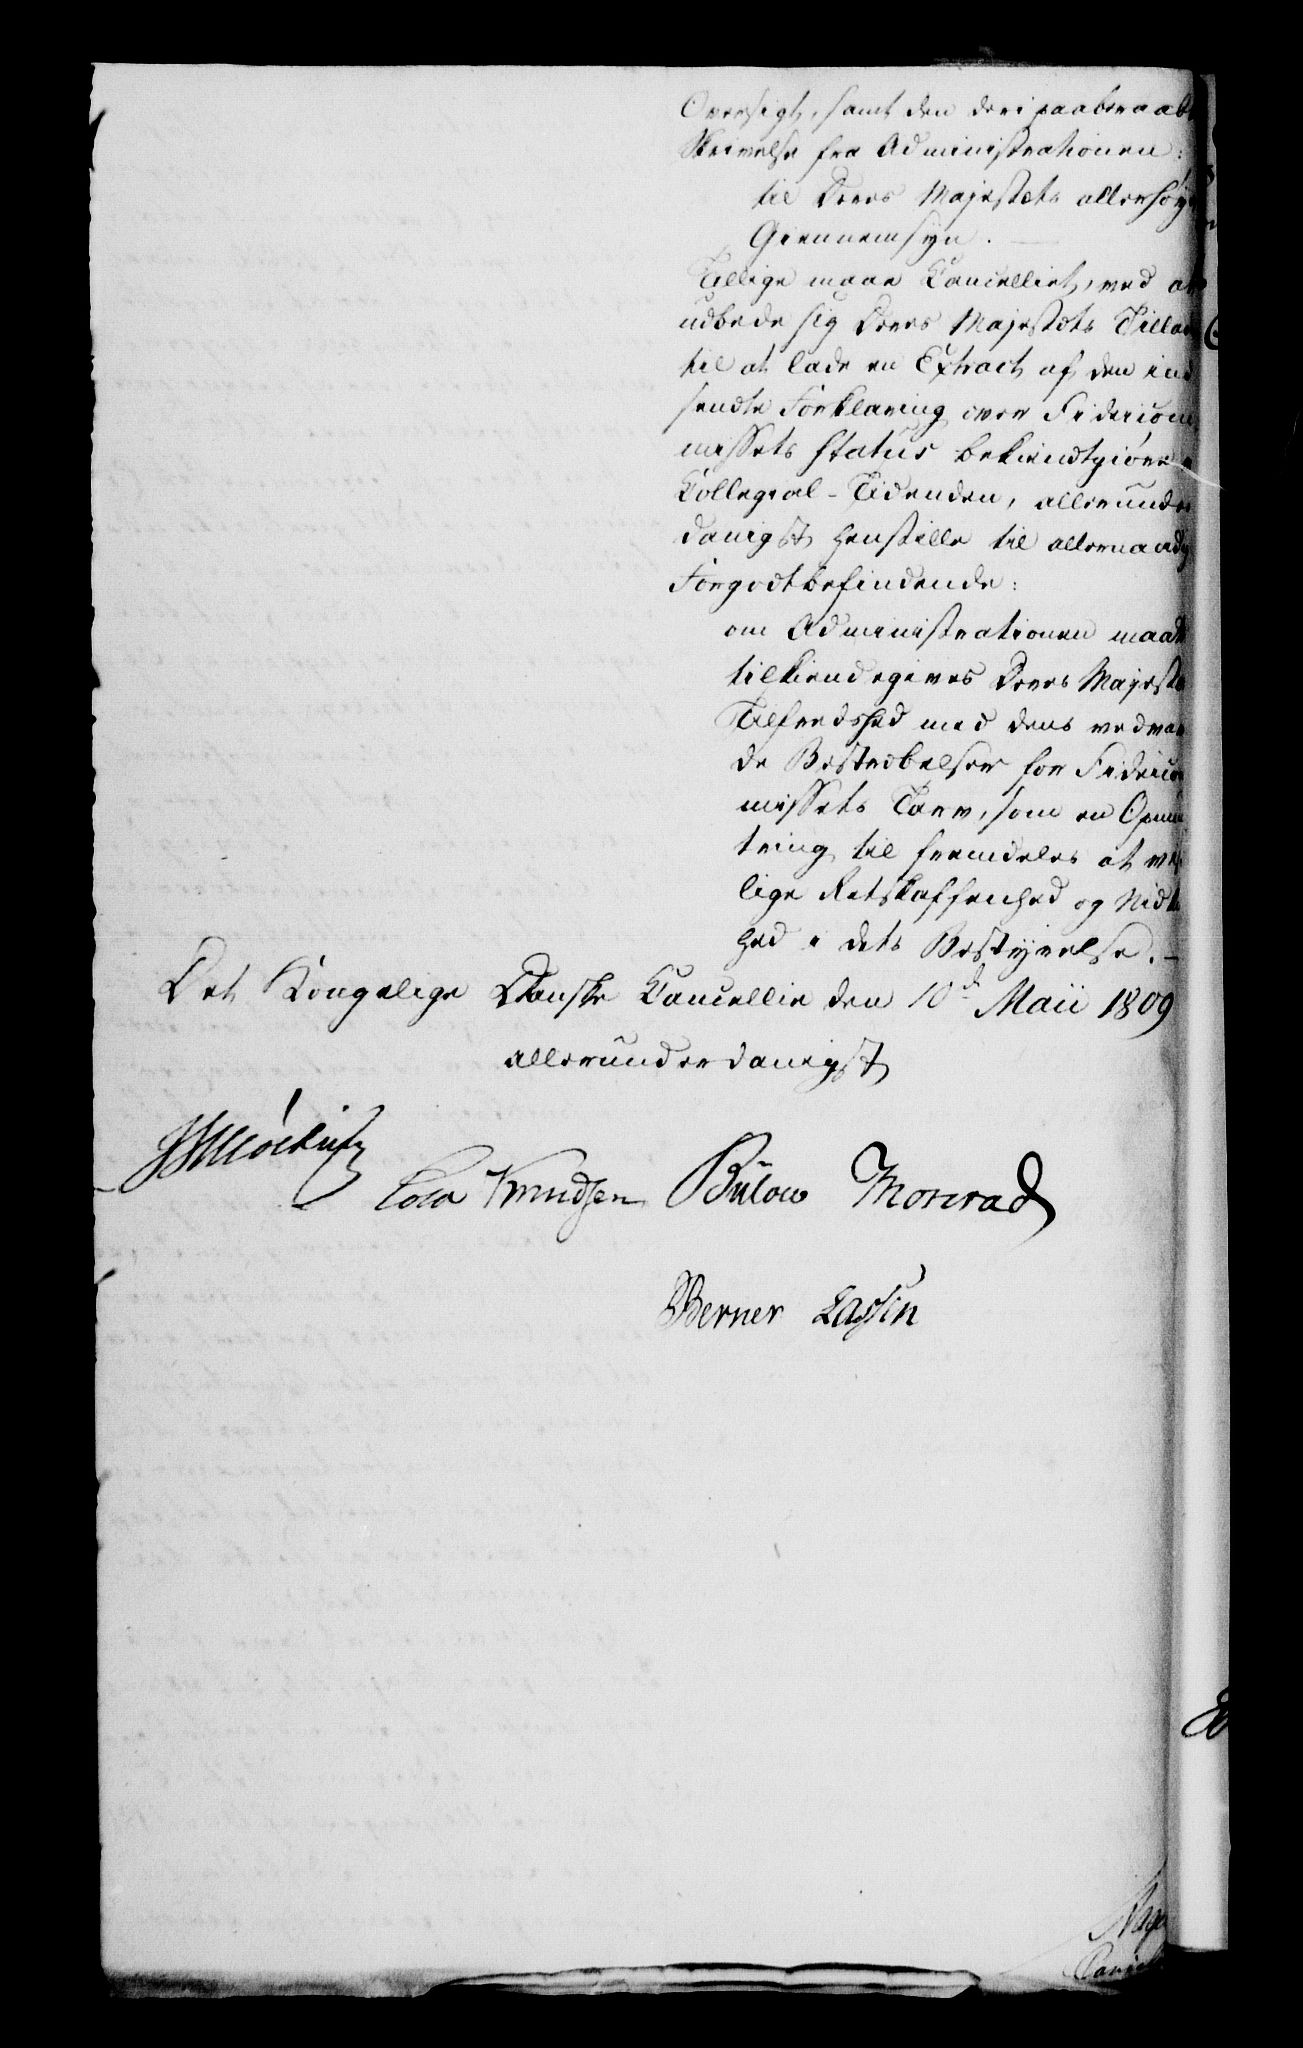 Oversigt, samt den deri paaberaabt
Skrivelse fra Administrationen:
til Deres Majestæts allerhøy
Giennemsyn. —
Tillige maae Cancelliet, ved at
udbede sig Deres Majestæts Tillad
til at lade en Extract af den ind
sendte Forklaring over Fideicom
missets Status bekiendtgiøre i
Collegial-Tidenden, allerunder
danigst henstille til allernaadig
Forgodtbefindende:
om Administrationen maatte
tilkiendegives Deres Majestæ
Tilfredshed med dens vedva
de Bestræbelser for Fideicom
missets Tarv, som en Opmun
tring til fremdeles at
lige Retskaffenhed og Nid
hed i dets Bestyrelse. —
Det Kongelige Danske Cancellie den 10d Maii 1809
allerunderdanigst
Cold Knudsen Bülow Monrad
Berner Lassen